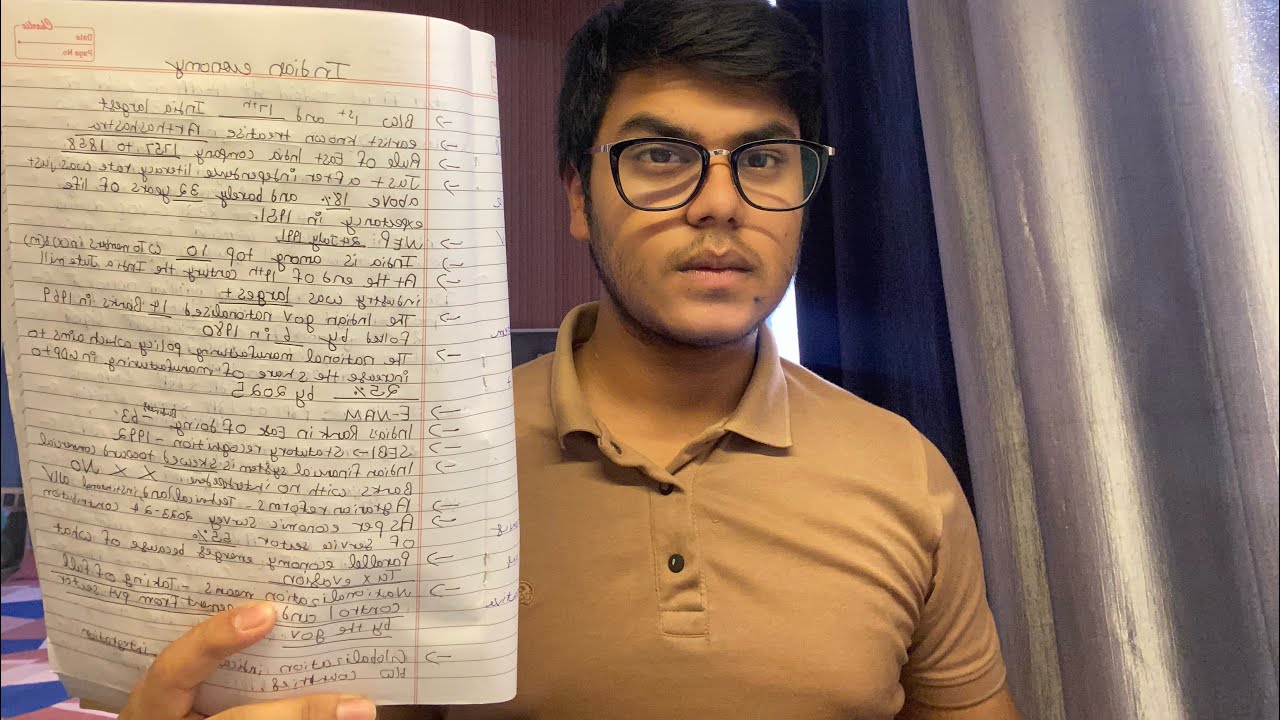 Chanlie
Date
Page No.
Indian economy
→ B/w 1st and 17th India largest
→ earlist known treatise Arthashastra
→ Rule of East India Company 1757 to 1858
→ Just after independence literacy rate was just
above 18% and barely 32 years of life
expectancy in 1951.
→ NEP: 24 July 1991
→ India is among top 10 WTO members
→ At the end of 19th century the India Jute mill
industry was largest
→ The Indian gov nationalised 14 Banks in 1969
Folled by 6 in 1980
→ The national manufacturing policy which aims to
increase the share of manufacturing in GDP to
25% by 2025
→ E-NAM
→ India's Rank in Ease of doing 63
→ SEBI → Statutory recognition - 1992
→ Indian Financial System is skewed towards commercial
Banks with no interfere X X NO
→ Agrarian reforms - Technical and institutional
→ As per economic survey 2023-24 contribution
of Service sector 55%
→ Parallel economy emerges because of what
Tax evasion
→ Nationalisation means - Taking of full
control and from pvt sector
by the gov
→ Globalisation integration
b/w countries.